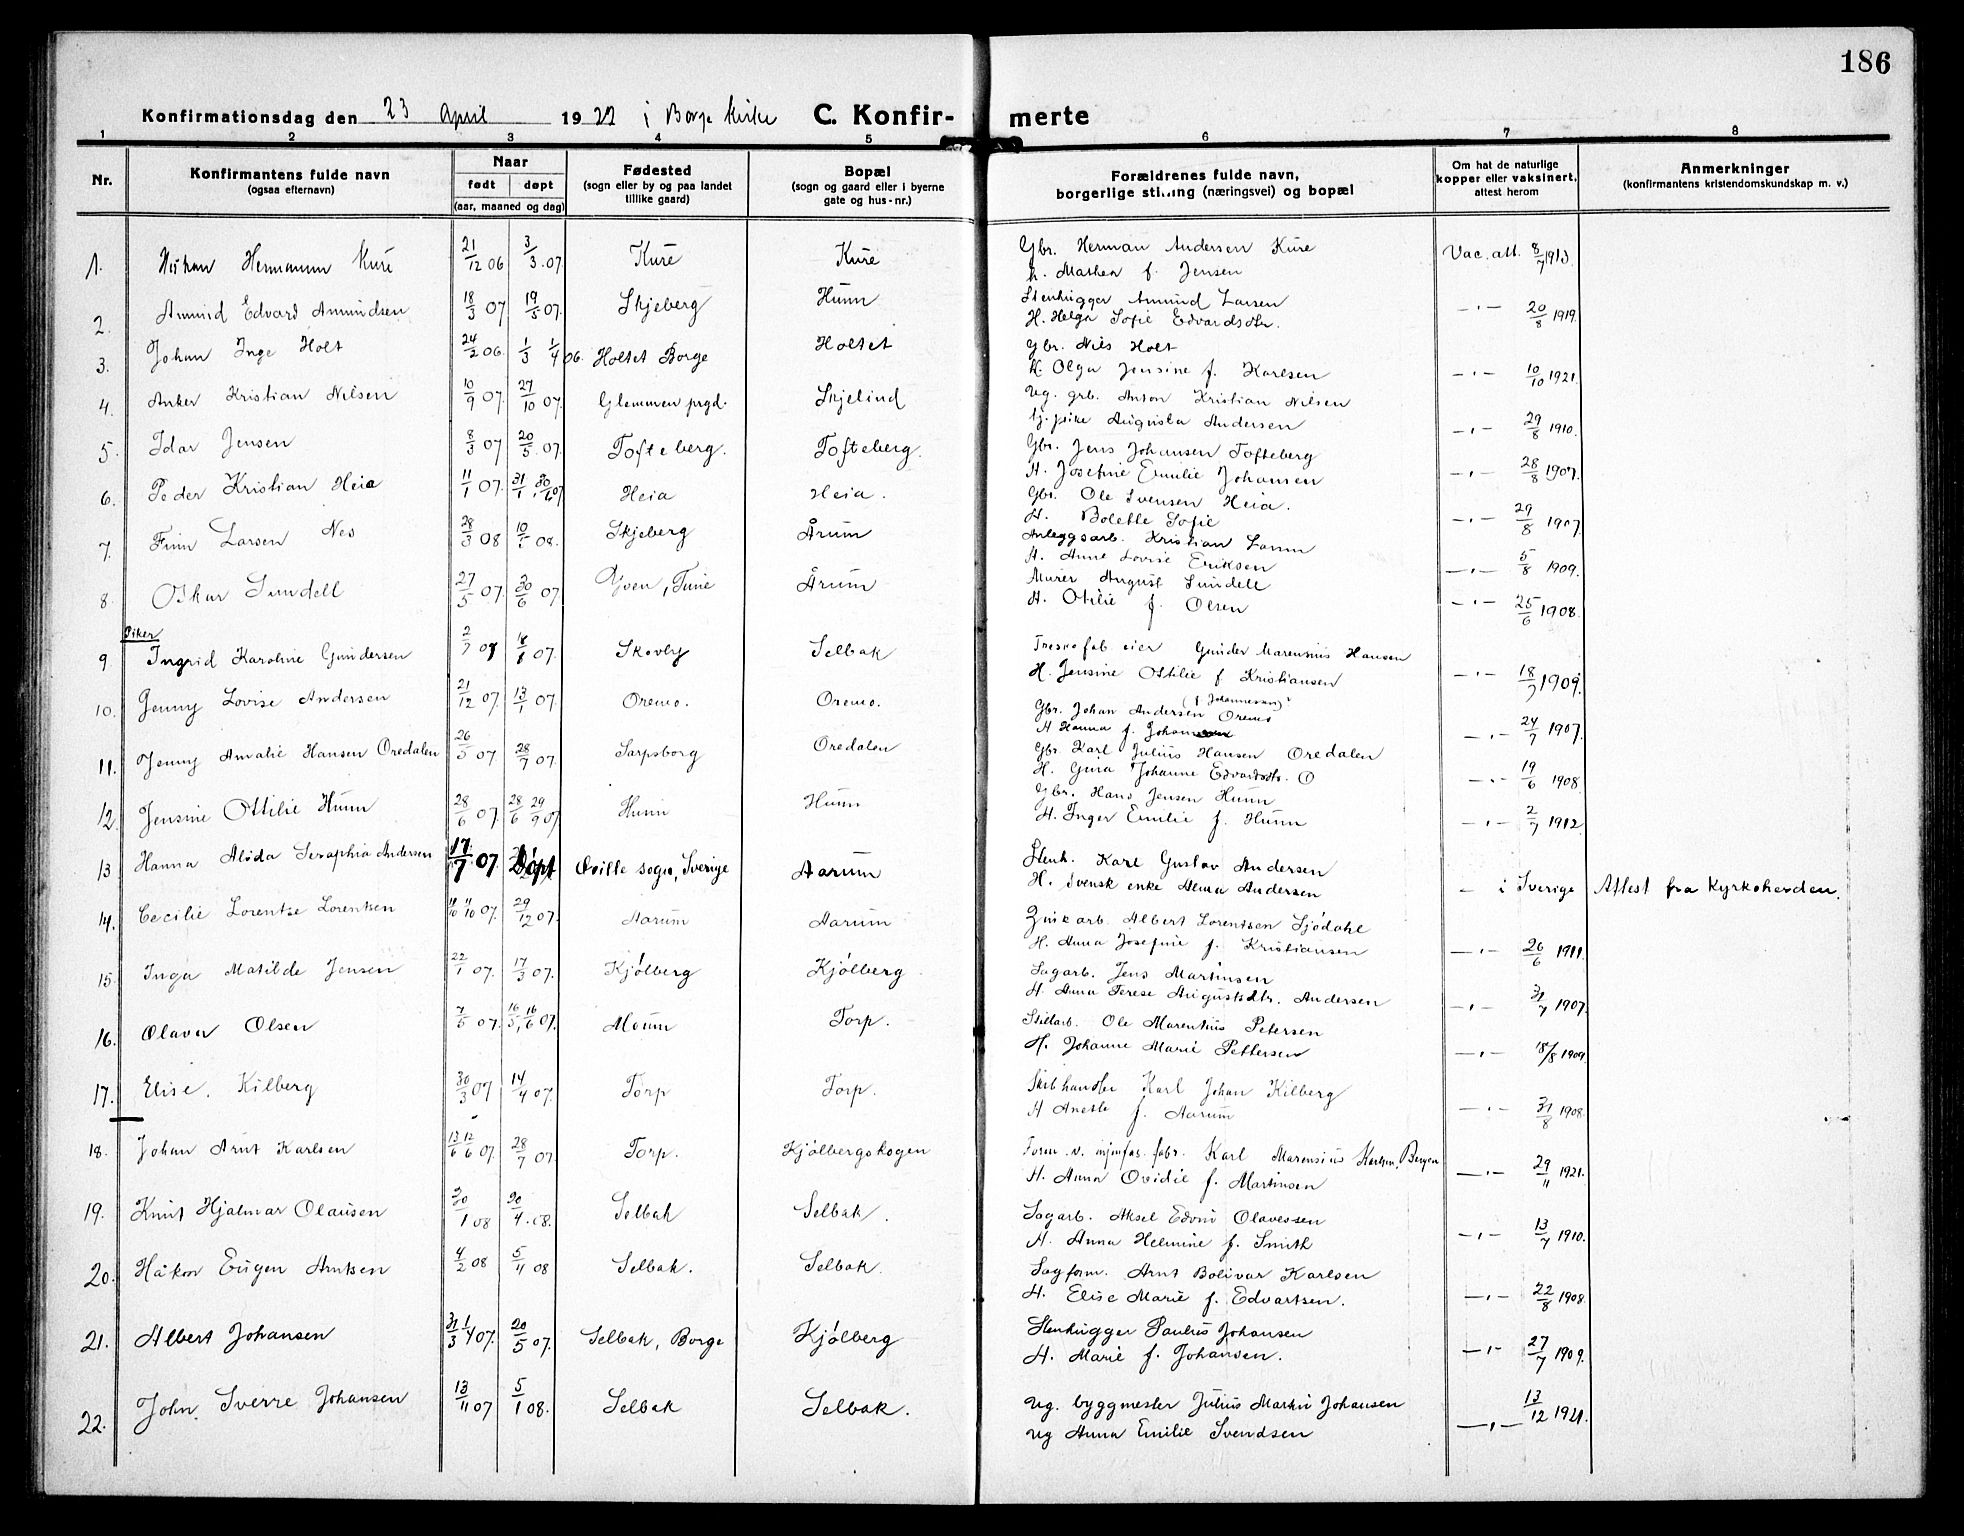 186
Konfirmationsdag den 23 April 1922 i Borge kirke C. Konfir- merte
1 2 3 4 5 6 7 8
Nr. Konfirmantens fulde navn (ogsaa efternavn) Naar født døpt (aar, maaned og dag) Fødested (sogn eller by og paa landet tillike gaard) Bopæl (sogn og gaard eller i byerne gate og hus-nr.) Forældrenes fulde navn, borgerlige stilling (næringsvei) og bopæl Om hat de naturlige kopper eller vaksinert, attest herom Anmerkninger (konfirmantens kristendomskundskap m. v.)
1. Hermann Kure 21/12 06 3/3.07. Kure Kure Gbr. Herman Andersen Kure Vac. att. 8/7 1913.
h. Mathea f. Jensen
2. Amund Edvard Amundsen 18/3 07 19/5 07. Skjeberg Hunn Stenhugger Amund Larsen —"— 20/8 1919.
H. Helga Sofie Edvardsdtr.
3. Johan Inge Holt 24/2 06. 1/3 1/4 06. Holtet Borge Holtet Gbr. Nils Holt
H. Olga Jensine f. Karlsen —"— 10/10 1921.
4. Anker Kristian Nilsen 10/9 07. 27/10 07. Glemmen prgd. Skjelind Ug. grb. Anton Kristian Nilsen
tj. pike Augusta Andersen —"— 29/8 1910.
5. Idar Jensen 8/3 07 20/5 07. Tofteberg. Tofteberg. Gbr. Jens Johansen Tofteberg
H. Josefine Emilie Johansen —"— 28/8 1907.
6. Peder Kristian Heia 11/1 07. 31/1, 30/6 07 Heia Heia. Gbr. Ole Svensen Heia.
H. Bolette Sofie —"— 29/8 1907
7. Finn Larsen Nes 28/3 08 10/5 08. Skjeberg Årum Anleggsarb. Kristian Larsen
H. Anne Lovise Eriksen —"— 5/8 1909.
8. Oskar Sundell 27/5 07. 30/6 07 Yven, Tune Årum Murer August Sundell
H. Otilie f. Olsen —"— 25/6 1908.
Piker
9. Ingrid Karoline Gundersen 2/7 07 18/8 07. Skovly Selbak Treskofab. eier Gunder Marensius Hansen
H. Jensine Ottilie f. Kristiansen —"— 18/7 1909.
10. Jenny Lovise Andersen 21/12 07. 13/1 07. Oremo. Oremo. Gbr. Johan Andersen Oremo (f. Johannesen)
H Hanna f. —"— 24/7 1907.
11. Jenny Amalie Hansen Øredalen 26/5 07 28/7 07. Sarpsborg Øredalen Gbr. Karl Julius Hansen Øredalen
H. Gina Johanne Edvardsdtr. Ø —"— 19/6 1908
12. Jensine Ottilie Hunn 28/6 07. 28/6 29/9 07 Hunn Hunn Gbr. Hans Jensen Hunn
H. Inger Emilie f. Hunn —"— 2/7 1912.
13 Hanna Alida Seraphia Andersen 17/7 07 Døpt Qville sogn, Sverige Aarum Stenh. Karl Gustav Andersen
H. Svensk enke Alma Andersen — i Sverige Attest fra Kyrkoherden.
14. Cecilie Lorentse Lorentsen 11/10 07. 29/12 07. Aarum Aarum Zinkarb. Albert Lorentsen Sjødahl
H. Anna Josefine f. Kristiansen —"— 26/6 1911.
15. Inga Matilde Jensen 22/1 07. 17/3 07. Kjölberg Kjölberg Sagarb. Jens Martinsen
H. Anna Terese Augustsdtr. Andersen —"— 31/7 1907.
16. Olava Olsen 7/5 07. 16/5, 16/6 07. Moum Torp. Stietarb. Ole Marentius Petersen
H. Johanne Marie Pettersen —"— 18/8 1909
17. Elise. Kilberg 30/3 07 14/4 07. Torp Torp. Skibhandler Karl Johan Kilberg
H Anette f. Aarum —"— 31/8 1908.
18. Johan Arnt Karlsen 13/6 12/6 07 28/7 07. Torp. Kjölbergskogen Form. v. fabr. Karl Marensius Karlsen, Bergen
H. Anna Ovidie f. Martinsen —"— 29/11 1921.
19. Knut Hjalmar Olausen 20/1 08 20/4.08. Selbak Selbak. Sagarb. Aksel Edvin Olavessen
H. Anna Helmine f. Smith —"— 13/7 1910.
20. Håkon Eugen Arntsen 4/2 08 5/11 08 Selbak. Selbak. Sagform. Arnt Bolivar Karlsen
H. Elise Marie f. Edvartsen. —"— 22/8 1908.
21. Albert Johansen 31/3 1/4 07. 20/5 07. Selbak, Borge Kjölberg Stenhugger Paulus Johansen
H. Marie f. Johansen. —"— 27/7 1909.
22. John. Sverre Johansen 13/11 07 5/1 08. Selbak Selbak. Ug. byggmester Julius Martin Johansen
Ug Anna Emilie Svendsen —"— 13/12 1921.